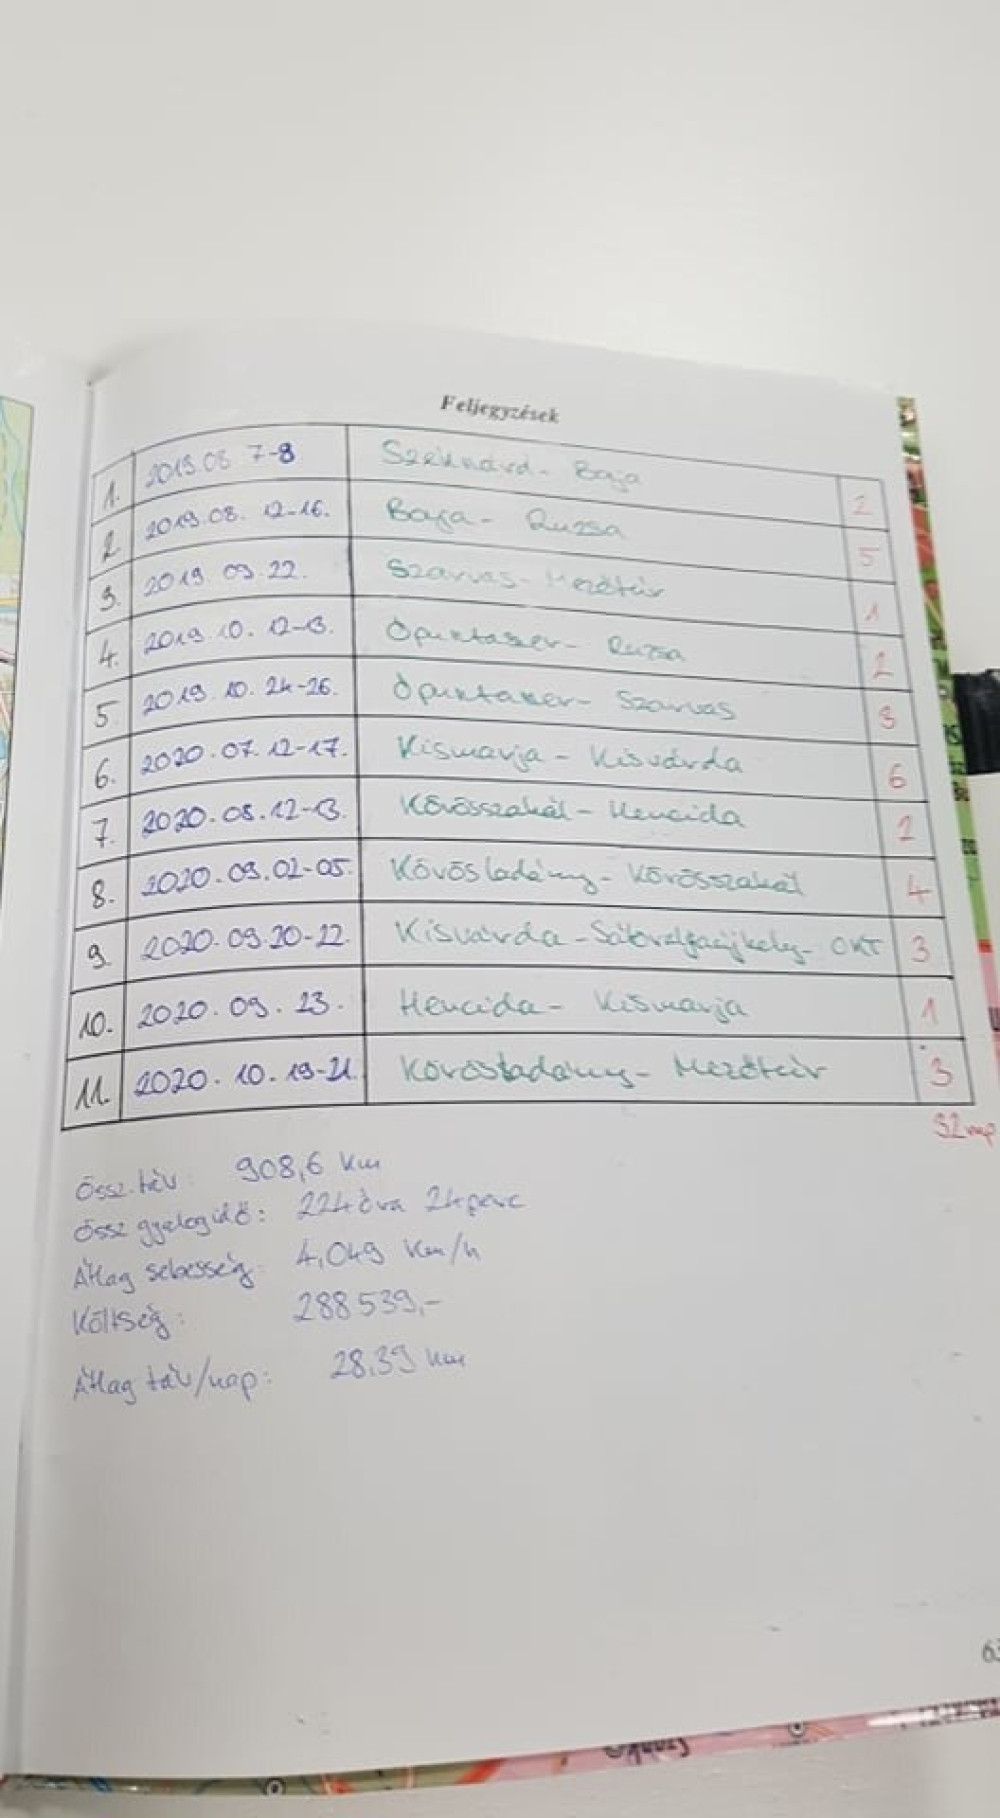 Feljegyzések
1. 2019.08 7-8 Szekszárd - Baja 2
2. 2019.08. 12-16. Baja - Ruzsa 5
3. 2019 09.22. Szarvas - Mezőtúr 1
4. 2019.10. 12-13. Ópusztaszer - Ruzsa 2
5. 2019.10.24-26. Ópusztaszer - Szarvas 3
6. 2020.07.12-17. Kismarja - Kisvárda 6
7. 2020.08.12-13. Körösszakál - Hencida 2
8. 2020.09.02-05. Körösladány - Körösszakál 4
9. 2020.09.20-22. Kisvárda - Sátoraljaújhely - OKT 3
10. 2020.09.23. Hencida - Kismarja 1
11. 2020.10.19-21. Körösladány - Mezőtúr 3
32 nap
Össz. táv: 908,6 km
Össz gyalogidő: 224 óra 24 perc
Átlag sebesség: 4,049 km/h
Költség: 288 539,-
Átlag táv/nap: 28,39 km